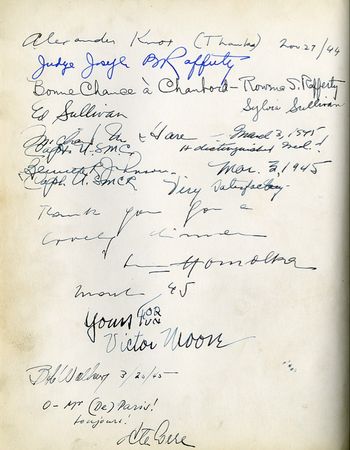 Alexander Knox (Thanks) Nov 27/44
Judge Joseph B Rafferty
Bonne Chance à Chambord - Rowena S. Rafferty
Ed Sullivan Sylvia Sullivan
March 3, 1945
Capt. U.S.M.C. A distinguished meal!
Mar. 3, 1945
Capt. U.S.M.C.R. Very Satisfactory
Thank you for a
lovely dinner
Homolka
March 45
Yours FOR FUN
Victor Moore
3/20/45
O- (De) Paris!
toujours!